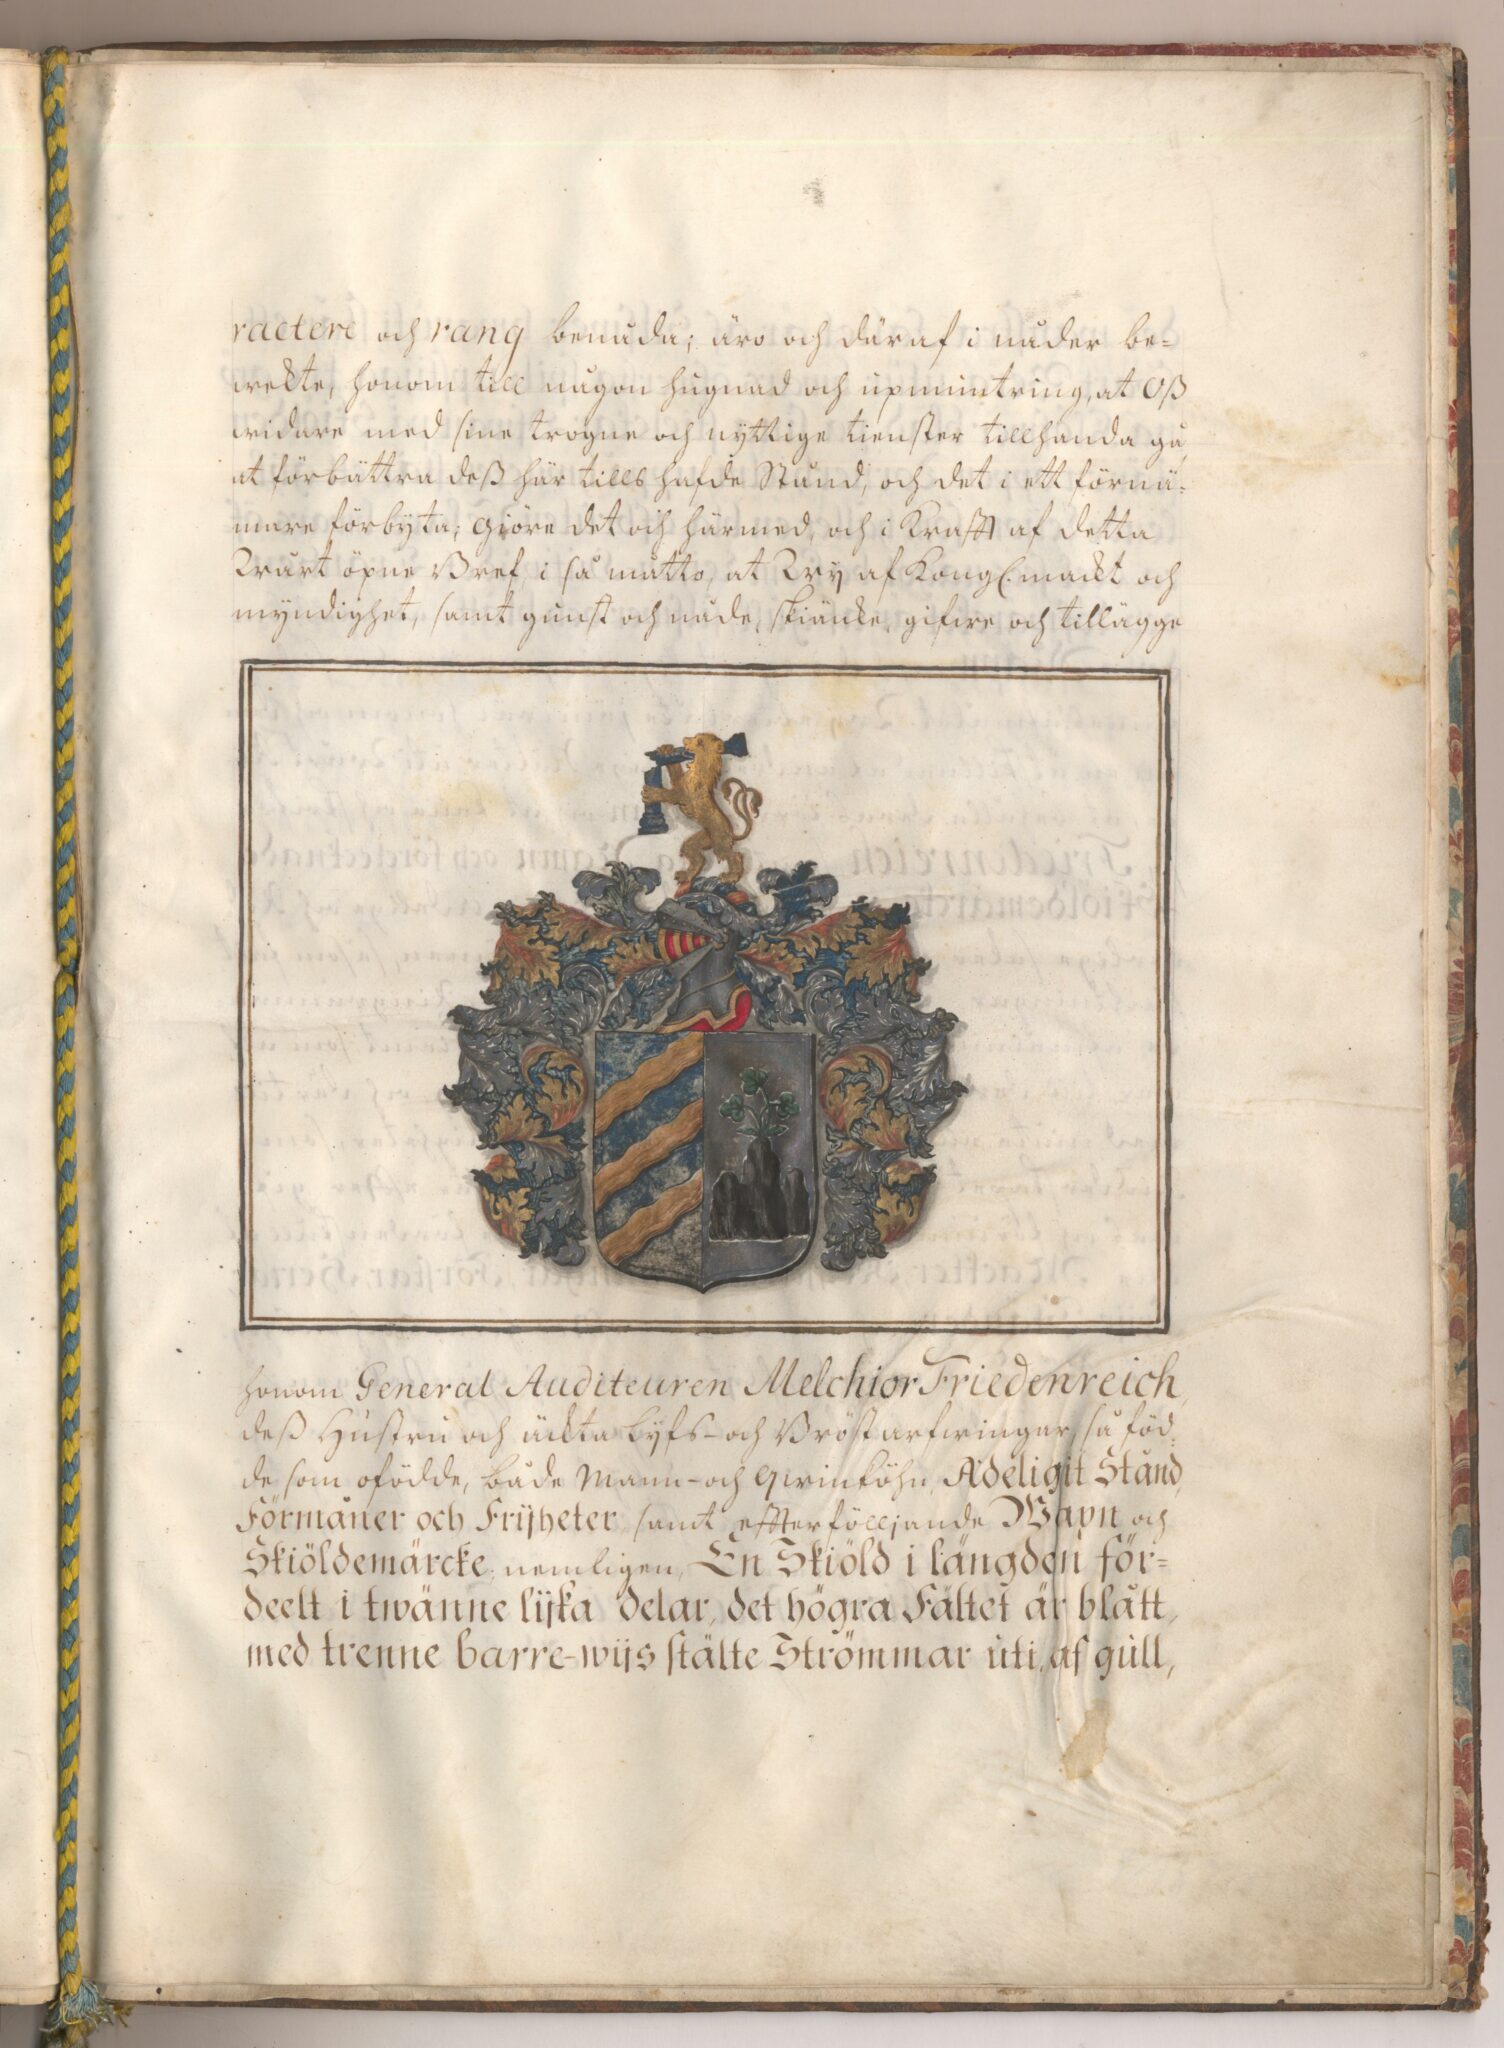 ractere och rang benåda; äro och däraf i nåder be=
wekte, honom till någon hugnad och upmuntring, at Oß
widare med sine trogne och nyttige tienster tillhanda gå,
at förbättra deß här tills hafde Stånd, och det i ett förnä=
mare förbyta; Giöre det och härmed, och i Krafft af detta
Wårt öpne Bref, i så måtto, at Wij af Kongl. mackt och
myndighet, samt gunst och nåde, skiäncke, gifwe och tillägge
honom General Auditeuren Melchior Friedenreich,
deß Hustru och ächta Lijfs- och Bröstarfwingar, så föd=
de som ofödde, både Mann- och Qwinköhn, Adeligit Stånd,
Förmåner och Frijheter, samt effterfölljande Wapn och
Skiöldemärcke, nemligen, En Skiöld i längden för=
deelt i twänne lijka delar, det högra Fältet är blått,
med trenne barre-wijs stälte Strömmar uti, af gull,